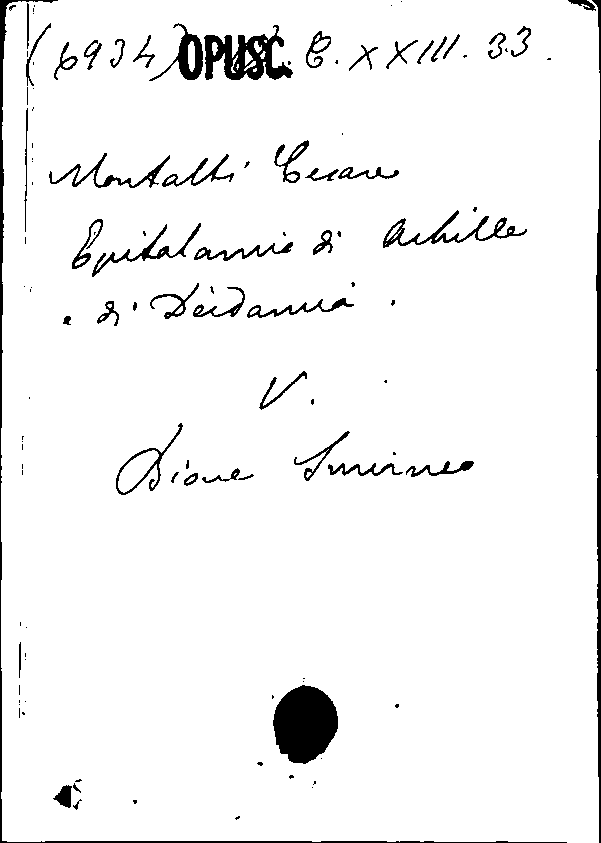 (6934) OPUSC. C. XXIII. 33.
Montalti Cesare
Epitalamio di Achille
e di Deidamia.
V.
Bione Smirneo